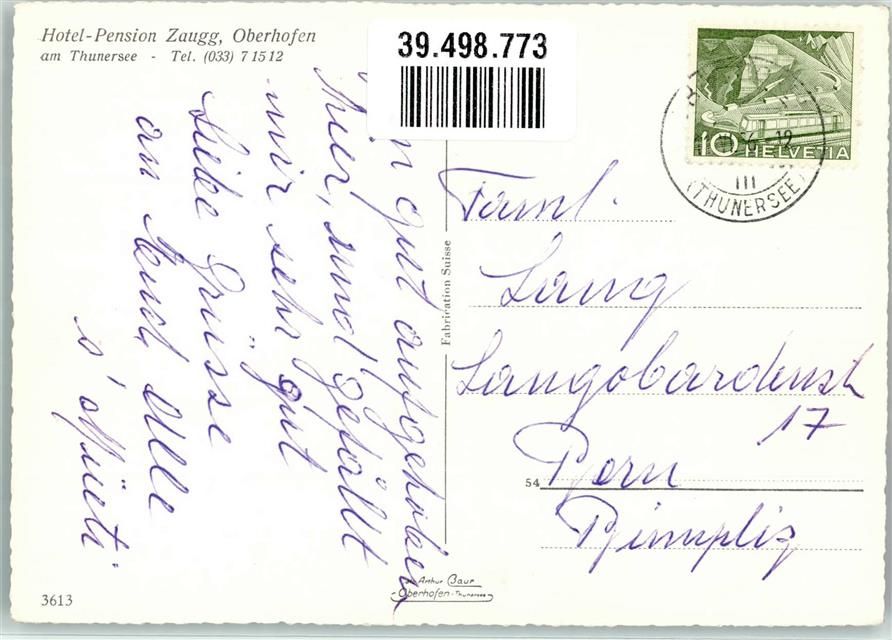 Hotel-Pension Zaugg, Oberhofen
am Thunersee - Tel. (033) 7 15 12
39.498.773
10 HELVETIA
12
III
(THUNERSEE)
gut aufgehoben
hier, und gefällt
mir sehr gut
Liebe Grüsse
an Euch Alle
s' Müeti
Fabrication Suisse
Faml.
Lang
Langobardenstr
17
54 Bern
Bümpliz
Arthur Baur
Oberhofen-Thunersee
3613